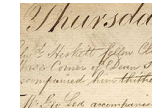 Thursda
Heskett fellow Cl
Corner of Dean S
companied him thith
Mr. Gy Led accompanie